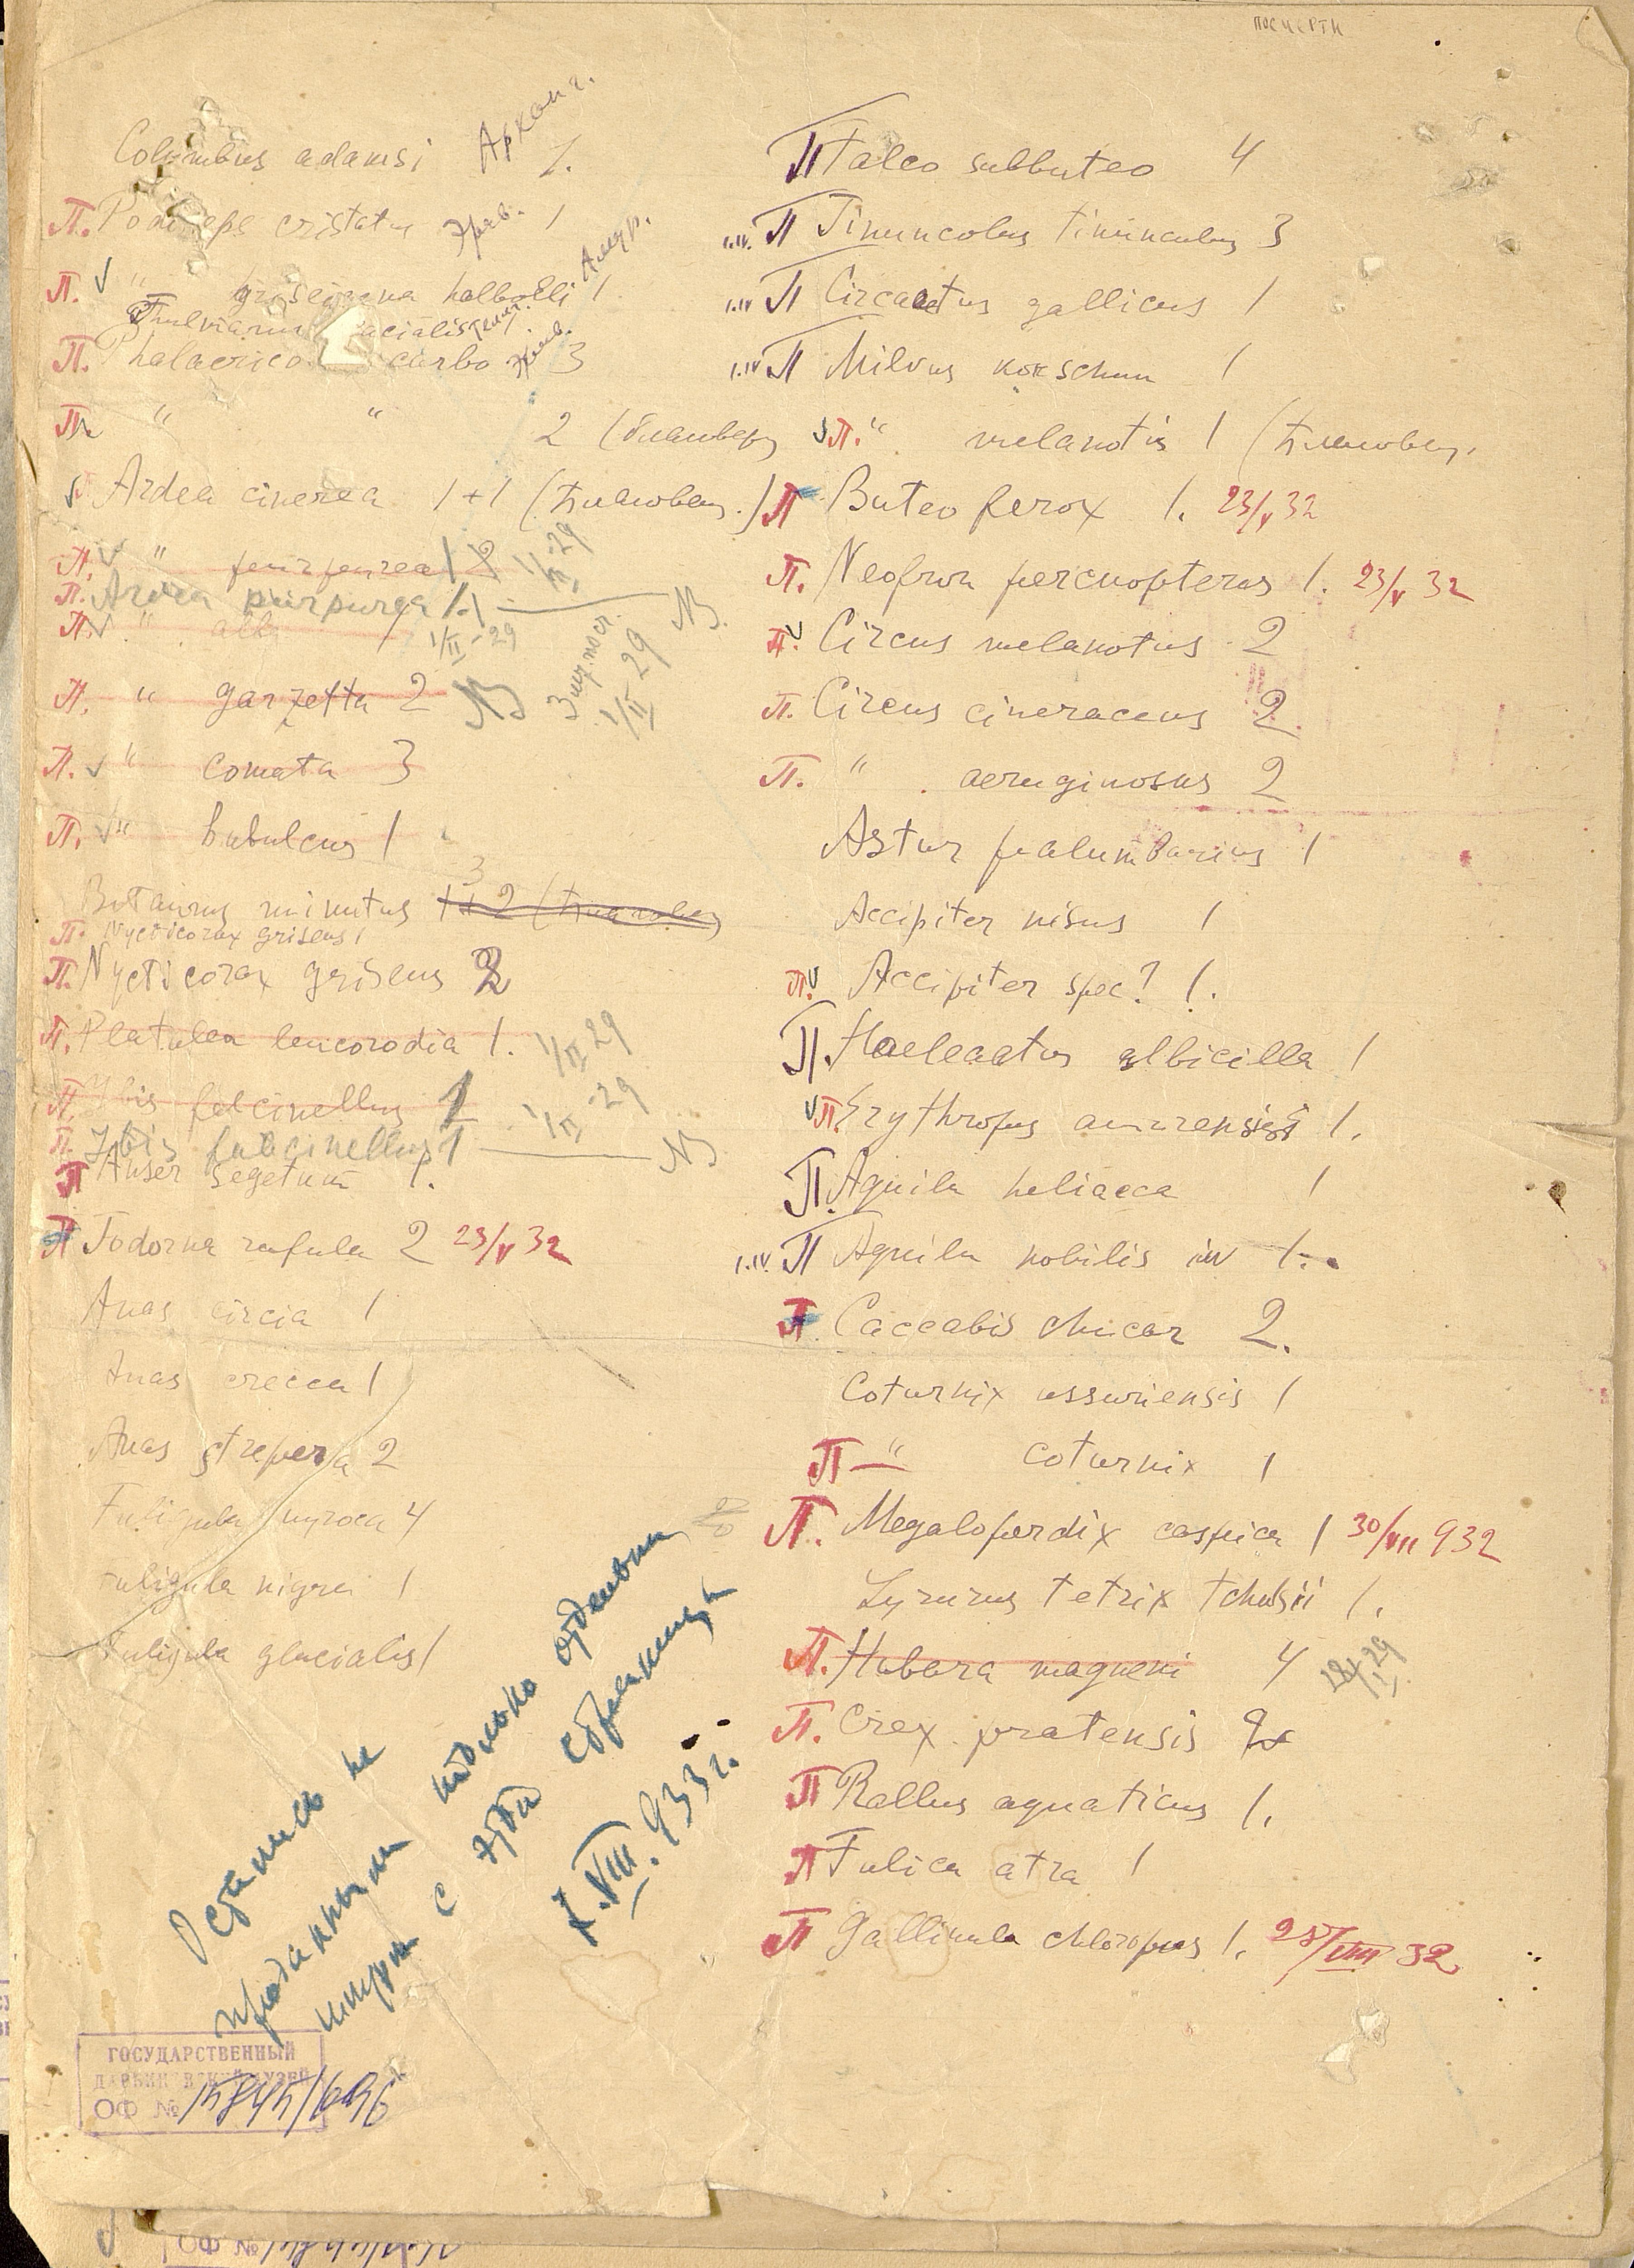 посмерти
Columbus adamsi Арханг. 1.
П. Podiceps cristatus 1
П. √ " griseigena halbolli Амур. 1
Fulmarus glacialis 1
П. Phalacrico carbo 3
П. " " 2 (
Ardea cinerea 1+1 (
П. √ " purpurea 1 2 1/II-29
П. Ardea purpurea 1.1 NB
П. √ " alba 1/II-29
П. " garzetta 2 NB 1/II 29
П. √ " comata 3
П. √ " bubulcus 1
Botaurus minutus 3
П. Nycticorax griseus 1
П. Nycticorax griseus 2
П. Platalea leucorodia 1. 1/II 29
П. Ibis falcinellus 1 1/II-29
П. Ibis falcinellus 1 NB
П Anser segetum 1.
П Todorna rufula 2 23/V 32
Anas circia 1
Anas crecca 1
Anas strepera 2
Fuligula nyroca 4
Fuligula nigra 1
Fuligula glacialis 1
П Falco subbuteo 4
1.IV. П Tinuncolus tinunculus 3
1.IV П Circaetus gallicus 1
1.IV П Milvus korschun 1
√ П. " melanotis 1 (
П Buteo ferox 1. 23/V 32
П. Neofron percnopteros 1. 23/V 32
П. √ Circus melanotus 2
П. Circus cineraceus 2
П. " aeruginosus 2
Astur palumbarius 1
Accipiter nisus 1
П. √ Accipiter spec? 1.
П. Haeleaetus albicilla 1
√ П. Erythropus amurensis 1.
П. Aquila heliacca 1
1.IV. П Aquila nobilis 1.
П. Caccabis chucar 2.
Coturnix ussuriensis 1
П — " coturnix 1
П. Megaloperdix caspica 1 30/VII 932
Lyrurus tetrix tchusii 1.
П. Hubara maqueni 4
П. Crex pratensis 2
П Rallus aquaticus 1.
П Fulica atra 1
П Gallinula chloropus 1. 28/VIII 32
Остались не
проданными только отдельные
шкурки с этой страницы
1.VIII.933 г.
ГОСУДАРСТВЕННЫЙ
ДАРВИНОВСКИЙ МУЗЕЙ
ОФ № 15845/696
ОФ №